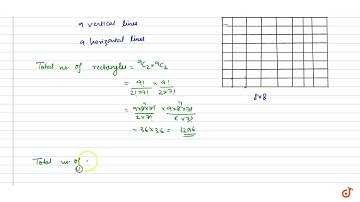 9 vertical lines
9 horizontal lines
Total no of rectangles = ⁹C₂ × ⁹C₂
= 9!/2!×7! × 9!/2×7!
= 9×8×7!/2×7! × 9×8×7!
= 36×36 = 1296
8×8
Total no of